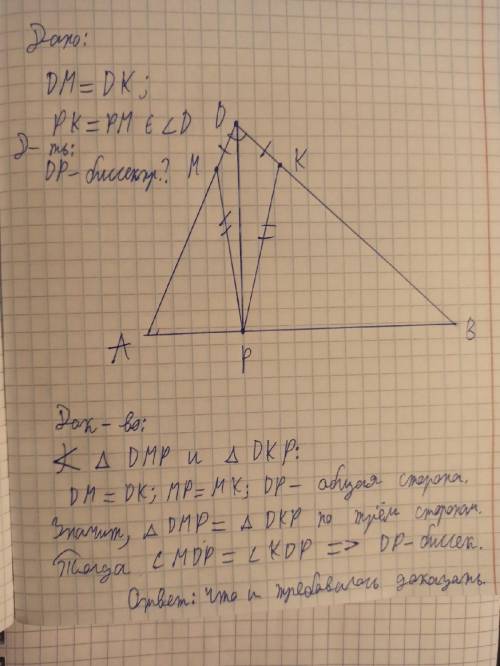 Дано:
DM = DK;
PK = PM ∈ ∠D
Д-ть:
DP - биссектр.?
D
M
K
A
P
B
Док-во:
∠ Δ DMP и Δ DKP:
DM = DK; MP = MK; DP - общая сторона.
Значит, Δ DMP = Δ DKP по трём сторонам.
Тогда ∠MDP = ∠KDP => DP - биссек.
Ответ: что и требовалось доказать.